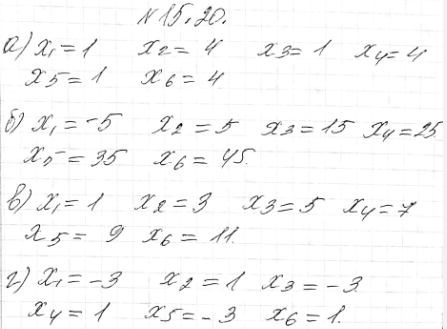 №15.20.
а) x₁ = 1 x₂ = 4 x₃ = 1 x₄ = 4
x₅ = 1 x₆ = 4
б) x₁ = -5 x₂ = 5 x₃ = 15 x₄ = 25
x₅ = 35 x₆ = 45.
в) x₁ = 1 x₂ = 3 x₃ = 5 x₄ = 7
x₅ = 9 x₆ = 11.
г) x₁ = -3 x₂ = 1 x₃ = -3
x₄ = 1 x₅ = -3 x₆ = 1.